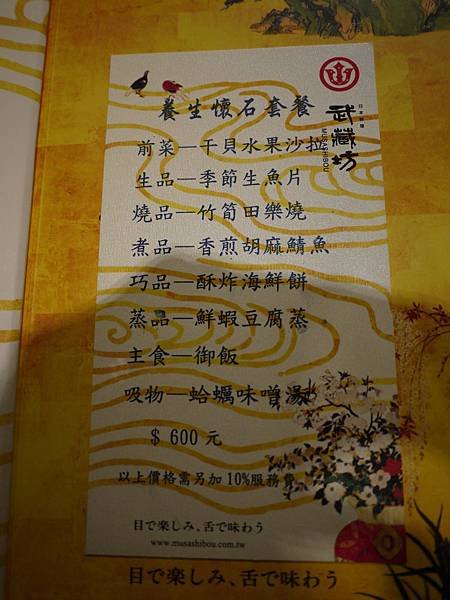 日本料理
武藏坊
MUSASHIBOU
養生懷石套餐
前菜—干貝水果沙拉
生品—季節生魚片
燒品—竹筍田樂燒
煮品—香煎胡麻鯖魚
巧品—酥炸海鮮餅
蒸品—鮮蝦豆腐蒸
主食—御飯
吸物—蛤蠣味噌湯
$ 600 元
以上價格需另加 10%服務費
目で楽しみ、舌で味わう
www.musashibou.com.tw
目で楽しみ、舌で味わう